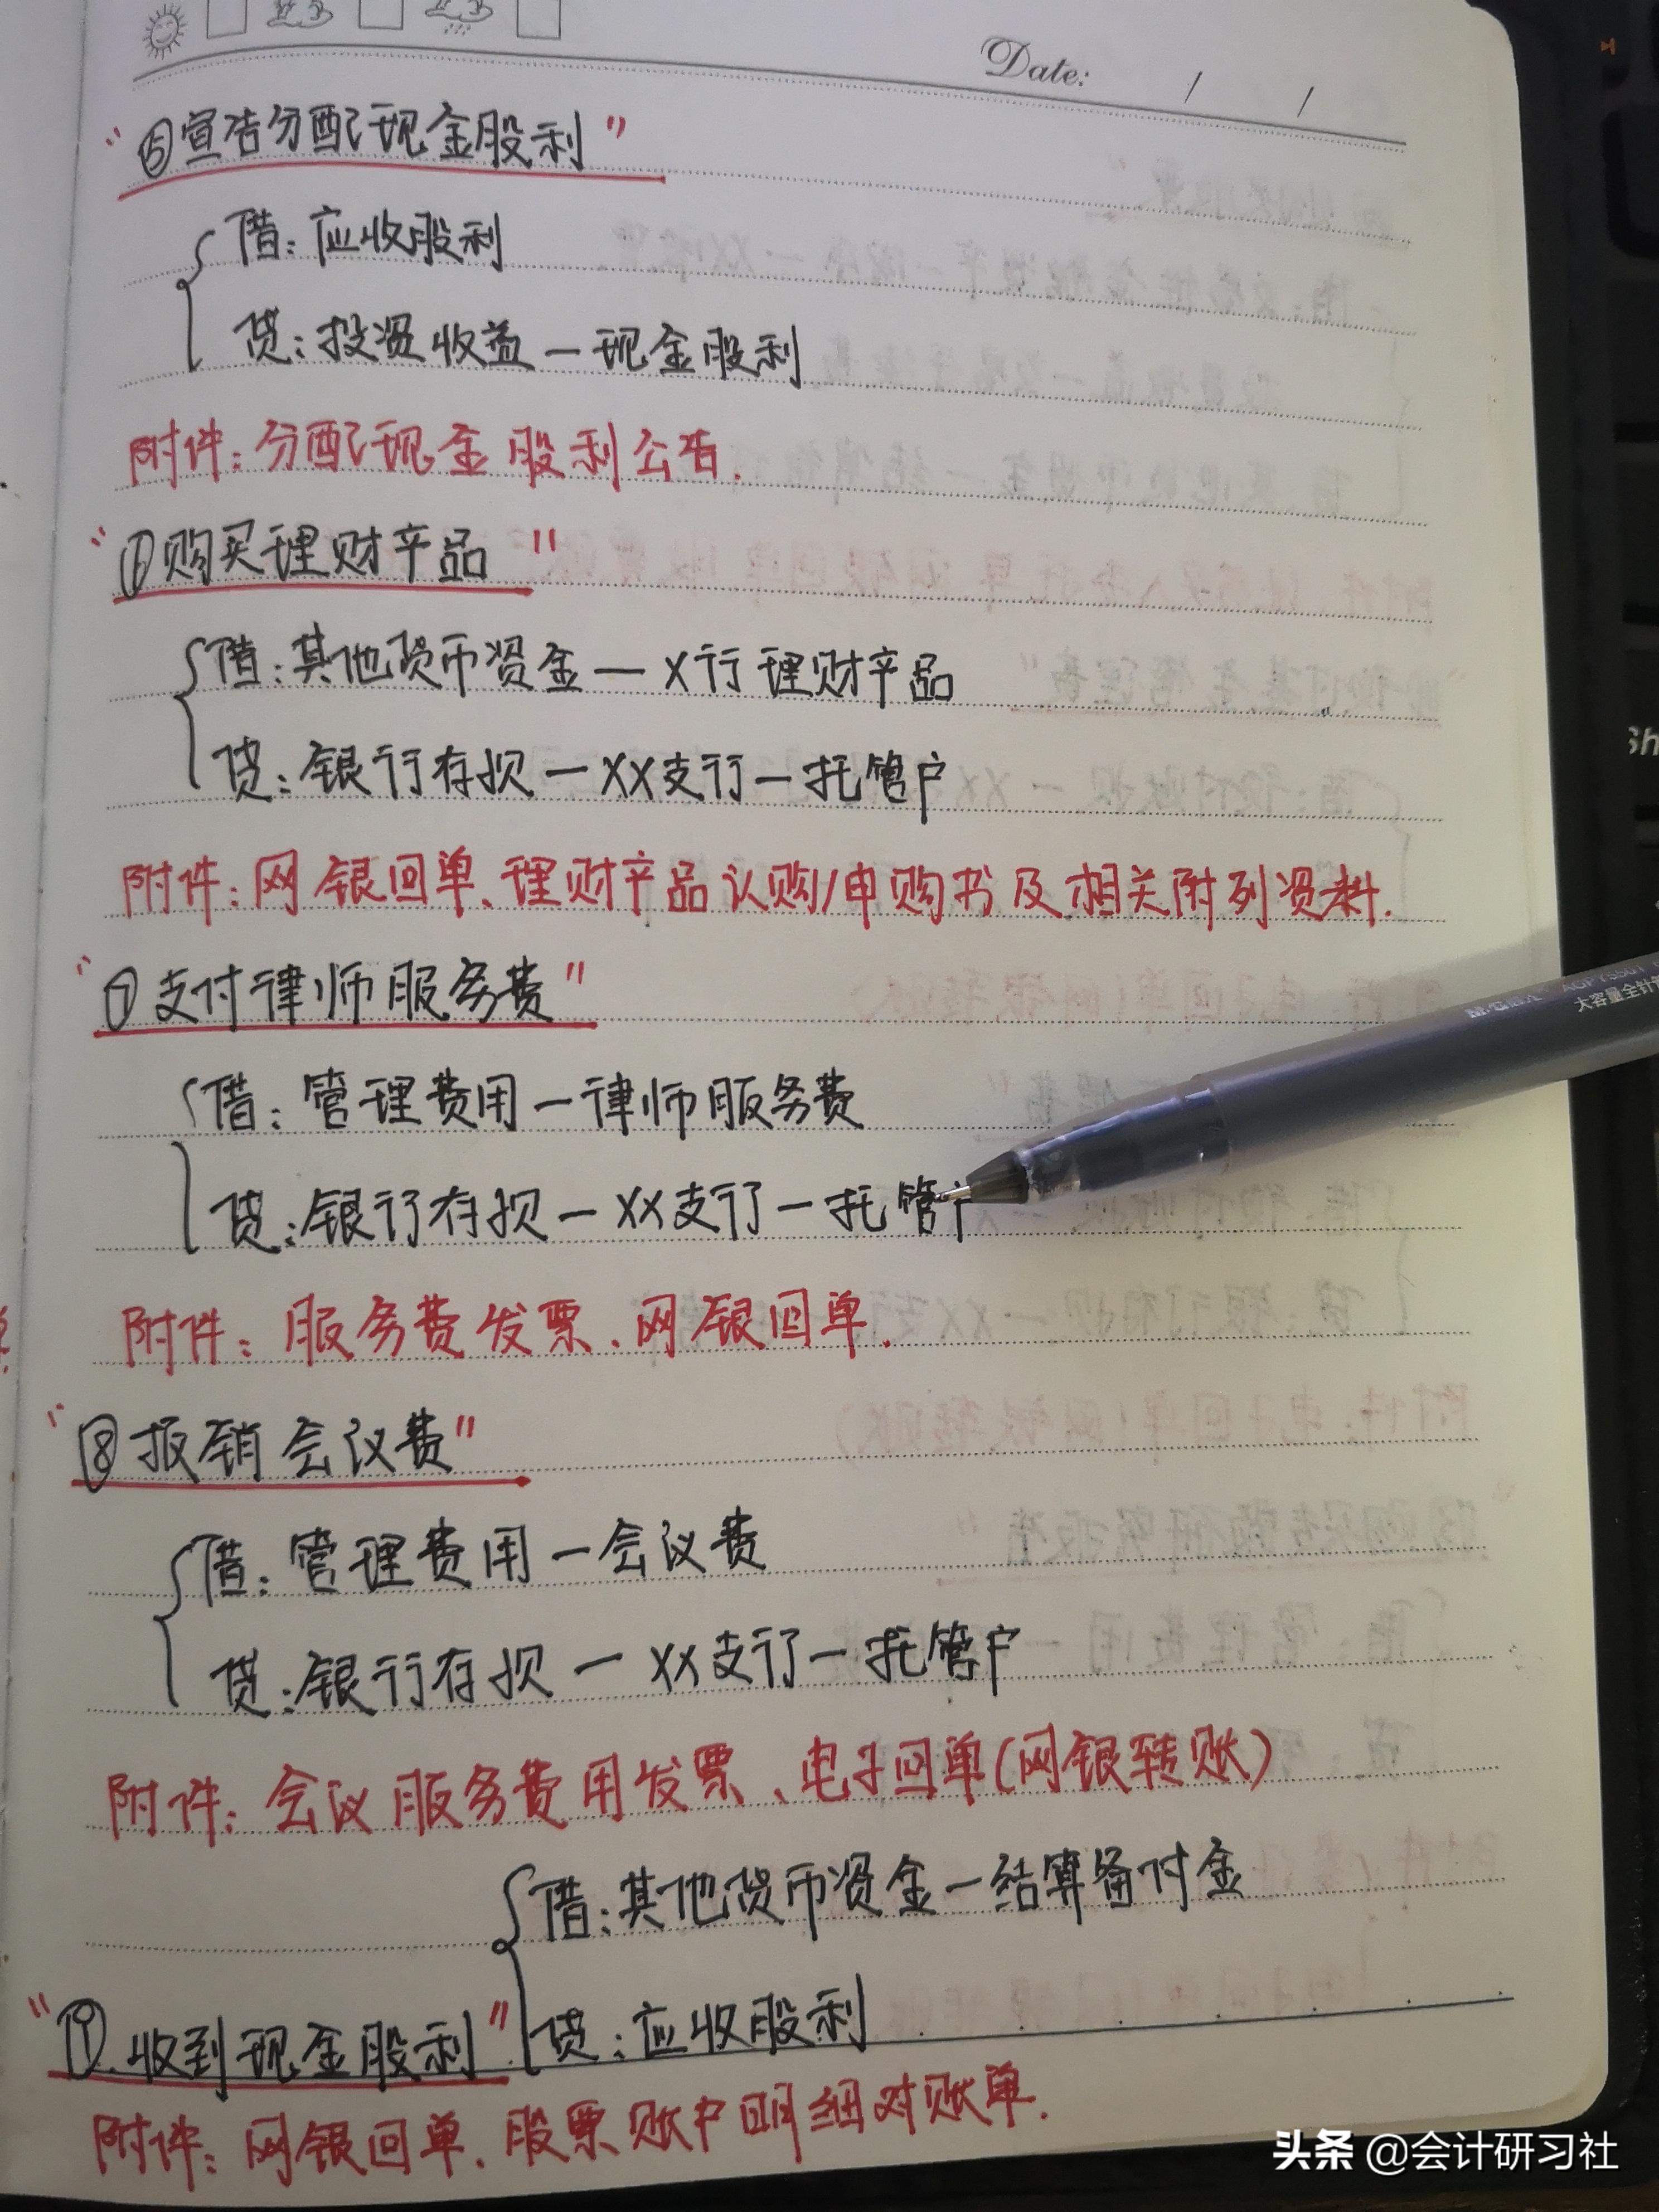 Date: / /
"⑤宣告分配现金股利"
借:应收股利
贷:投资收益—现金股利
附件:分配现金股利公告.
"⑥购买理财产品"
借:其他货币资金—X行理财产品
贷:银行存款—XX支行—托管户
附件:网银回单、理财产品认购/申购书及相关附列资料.
"⑦支付律师服务费"
借:管理费用—律师服务费
贷:银行存款—XX支行—托管户
附件:服务费发票、网银回单.
"⑧报销会议费"
借:管理费用—会议费
贷:银行存款—XX支行—托管户
附件:会议服务费用发票、电子回单(网银转账)
借:其他货币资金—结算备付金
"⑨.收到现金股利" 贷:应收股利
附件:网银回单、股票账户明细对账单.
M&G AGPY5501
大容量全针
Sh
头条 @会计研习社